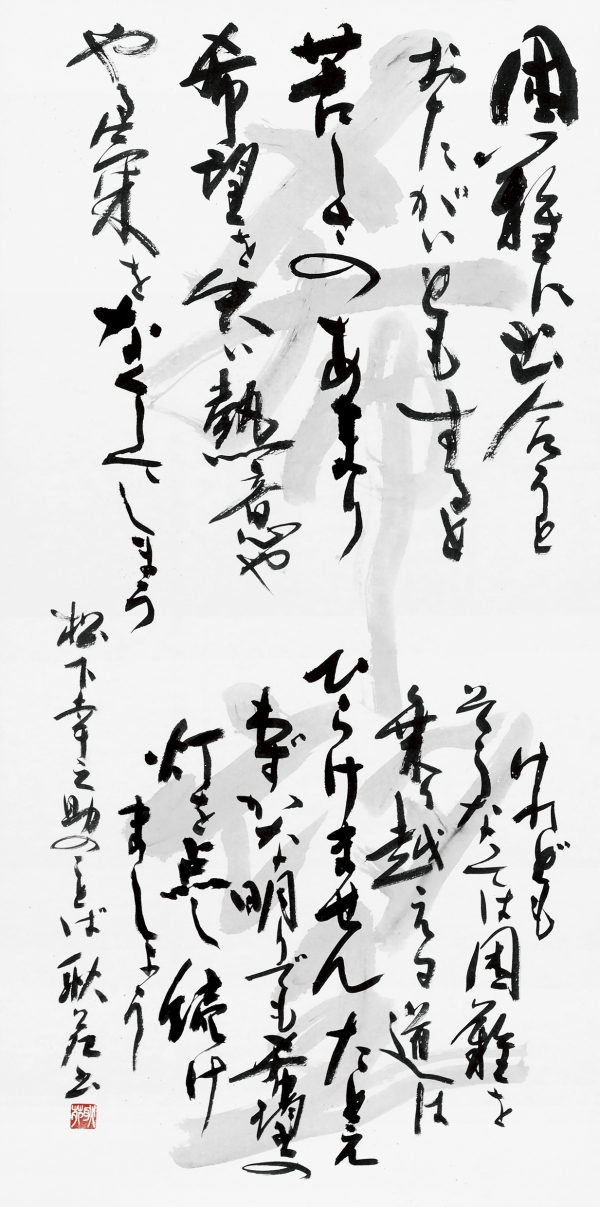 困難に出合うと
おたがいともすると
苦しさのあまり
希望を失い熱意や
やる気をなくしてしまう
けれども
そうなっては困難を
乗り越える道は
ひらけません たとえ
わずかな明りでも希望の
灯を点し続け
ましょう
松下幸之助のことば 耿若書